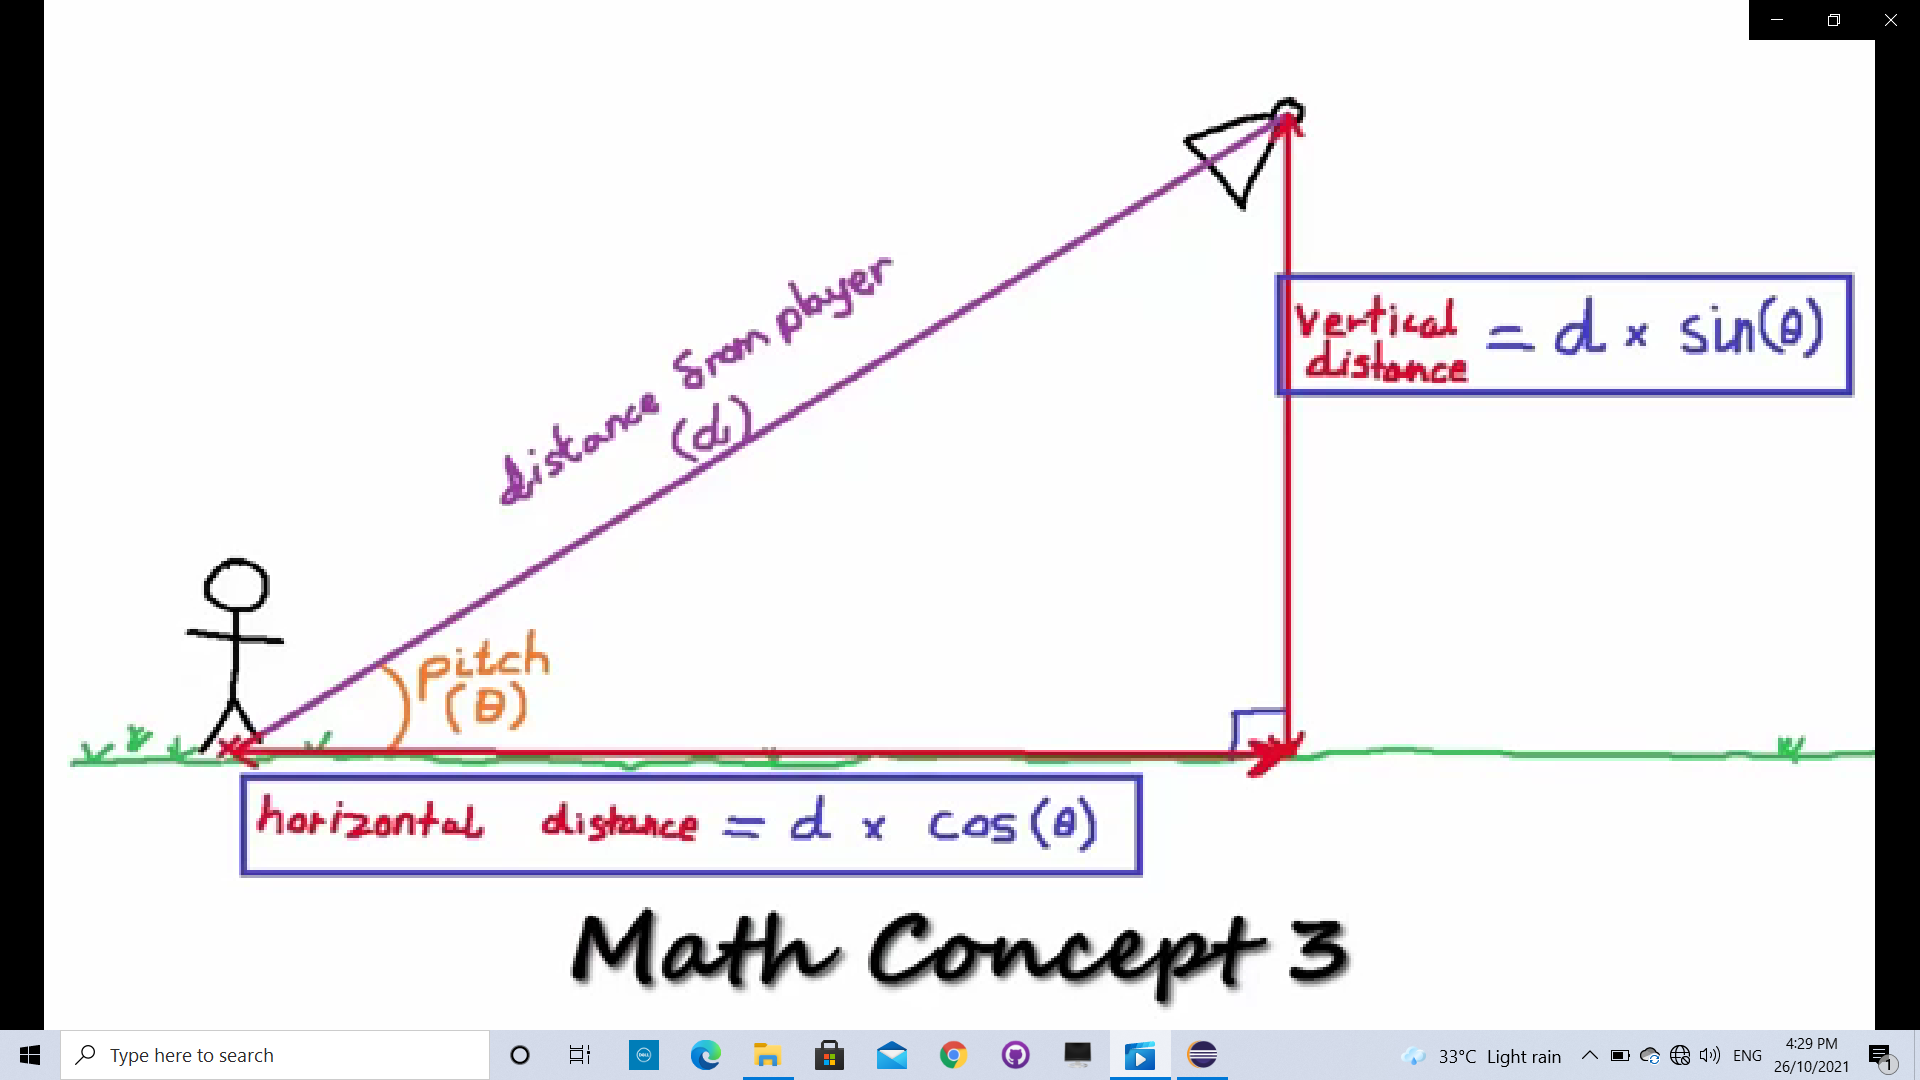 distance from player
(d)
vertical
distance = d × sin(θ)
pitch
(θ)
horizontal distance = d × cos(θ)
Math Concept 3
Type here to search
DELL
33°C Light rain
ENG
4:29 PM
26/10/2021
1